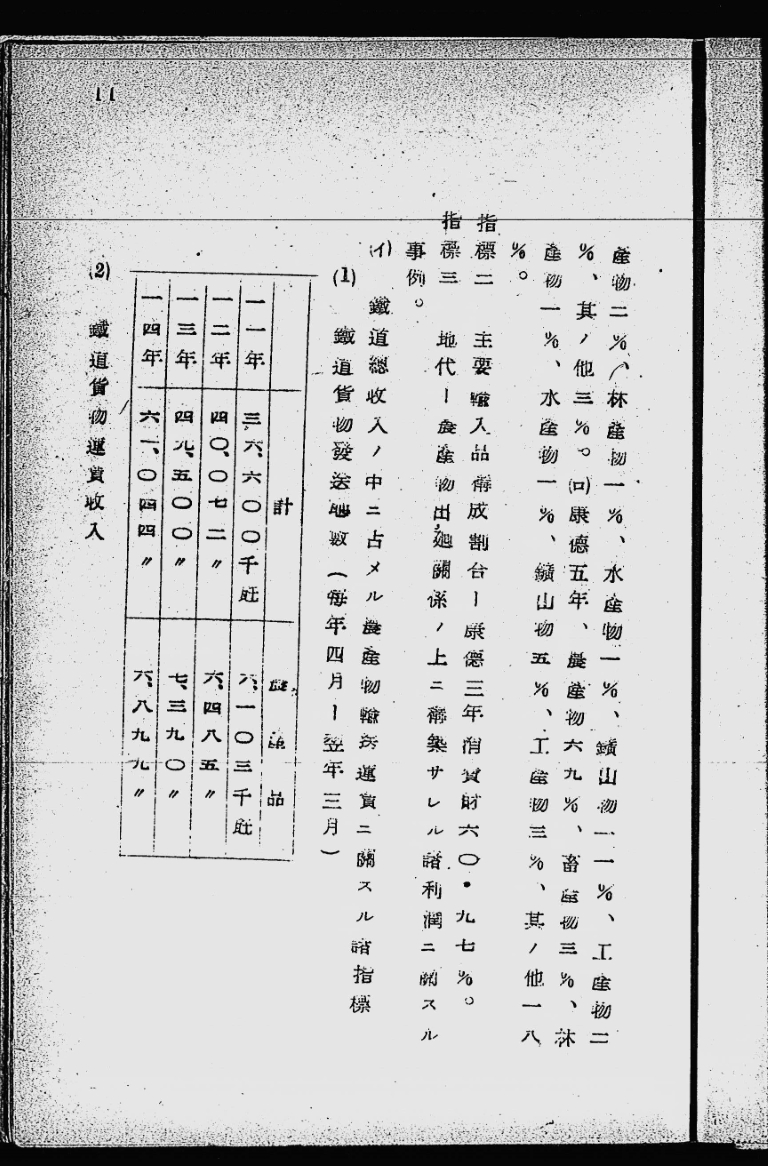 11
產物二%、林產物一%、水產物一%、鑛山物一一%、工產物二
%、其ノ他三%。(ロ)康德五年、農產物六九%、畜產物三%、林
產物一%、水產物一%、鑛山物五%、工產物三%、其ノ他一八
%。
指標二 主要輸入品構成割合ー康德三年消費財六〇・九七%。
指標三 地代ー農產物出廻關係ノ上ニ構築サレル諸利潤ニ關スル
事例。
(イ) 鐵道總收入ノ中ニ占メル農產物輸送運賃ニ關スル諸指標
(1) 鐵道貨物發送噸數(每年四月ー翌年三月)
計 農產品
一一年 三六、六〇〇千瓩 六、一〇三千瓩
一二年 四〇、〇七二〃 六、四八五〃
一三年 四九、五〇〇〃 七、三九〇〃
一四年 六一、〇四四〃 六、八九九〃
(2) 鐵道貨物運賃收入